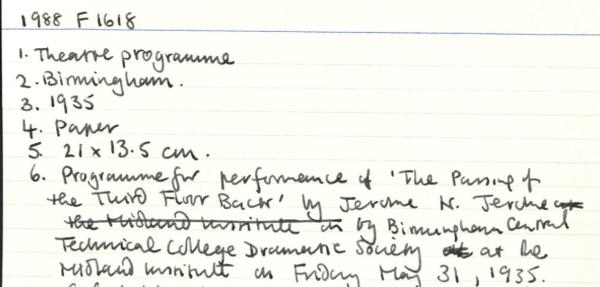 1988 F 1618
1. Theatre programme
2. Birmingham.
3. 1935
4. Paper
5. 21 x 13.5 cm.
6. Programme for performance of 'The Passing of
the Third Floor Back' by Jerome K. Jerome at
the Midland Institute on by Birmingham Central
Technical College Dramatic Society at at the
Midland Institute on Friday May 31, 1935.